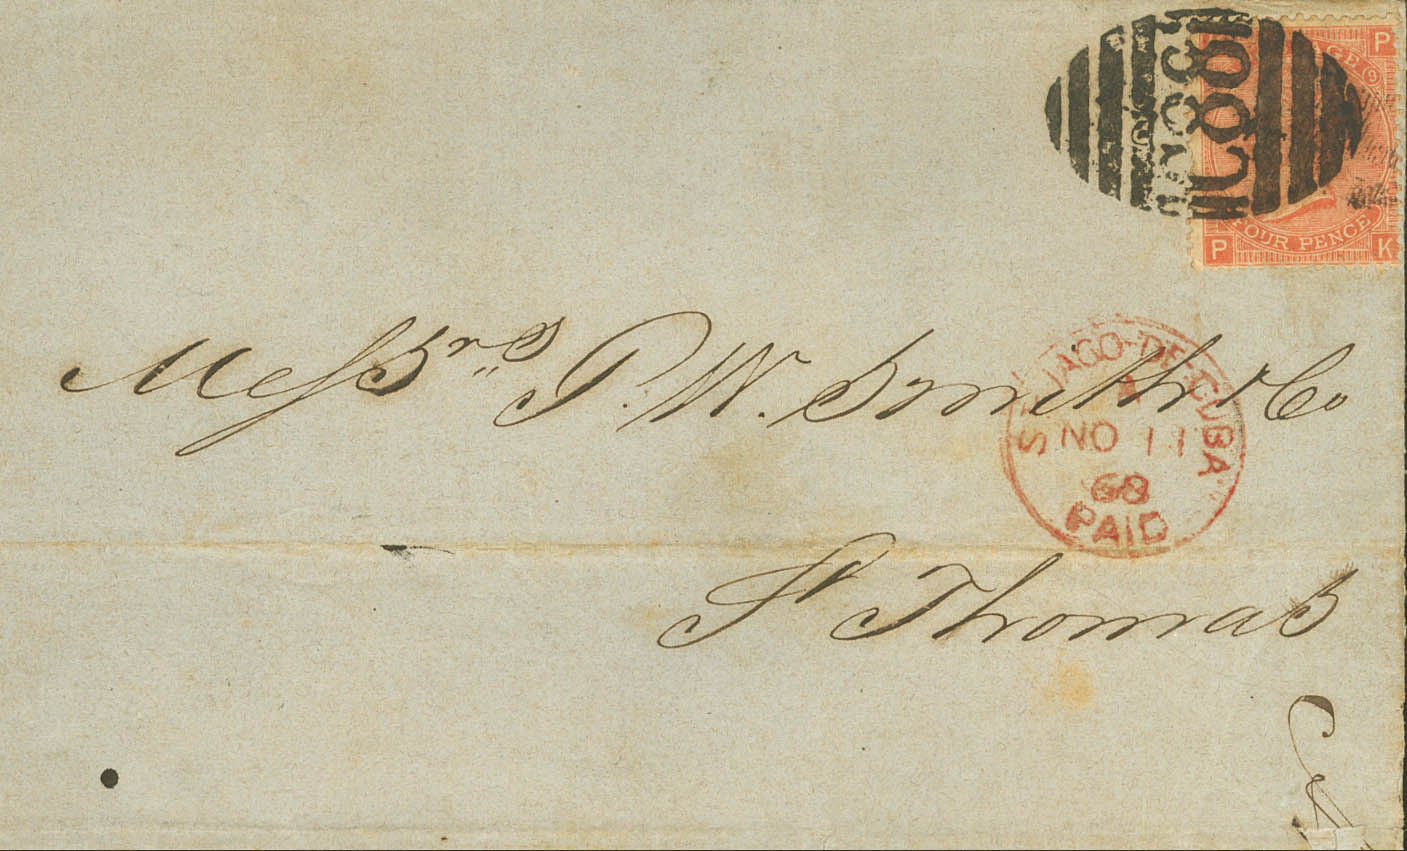 C88
P
FOUR PENCE
P K
Messrs P. W. Smith & Co
S. JAGO-DE-CUBA
A
NO 11
68
PAID
St Thomas